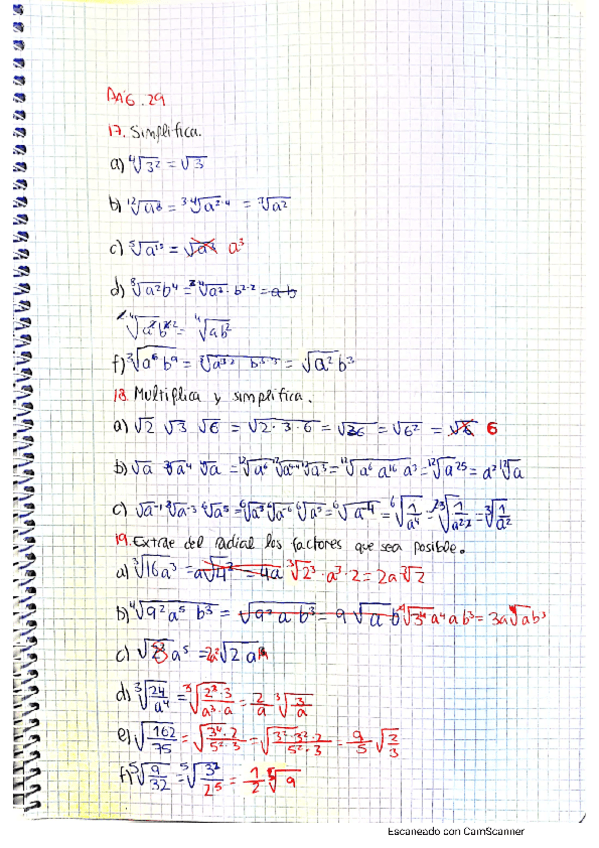 PÁG. 29
17. Simplifica.
a) ⁴√3² = √3
b) ¹²√a⁸ = ³·⁴√a²·⁴ = ³√a²
c) ⁵√a¹⁵ = √a⁴ a³
d) ⁸√a²b⁴ = ²·⁴√a² · b²·² = a b
²·⁴√a²b²·² = ⁴√ab²
f) ³√a⁶ b⁹ = √a³·² b³·³ = √a² b³
18. Multiplica y simplifica.
a) √2 √3 √6 = √2·3·6 = √36 = √6² = √6 6
b) √a ³√a⁴ ⁴√a = ¹²√a⁶ ¹²√a⁴·⁴ ¹²√a³ = ¹²√a⁶ a¹⁶ a³ = ¹²√a²⁵ = a² ¹²√a
c) √a⁻¹ ³√a⁻³ ⁶√a⁵ = ⁶√a⁻³ ⁶√a⁻⁶ ⁶√a⁵ = ⁶√a⁻⁴ = ⁶√1/a⁴ = ²·³√1/a²·² = ³√1/a²
19. Extrae del radial los factores que sea posible.
a) ³√16a³ = a√4³ = 4a ³√2³·a³·2 = 2a ³√2
b) ⁴√9²a⁵ b³ = √9² a b³ = 9 √a b ⁴√3⁴ a⁴ a b³ = 3a ⁴√ab³
c) √8 a⁵ = 2a² √2 a
d) ³√24/a⁴ = ³√2³·3/a³·a = 2/a ³√3/a
e) √162/75 = √3⁴·2/5²·3 = √3²·3²·2/5²·3 = 9/5 √2/3
f) ⁵√9/32 = ⁵√3²/2⁵ = 1/2 ⁵√9
Escaneado con CamScanner